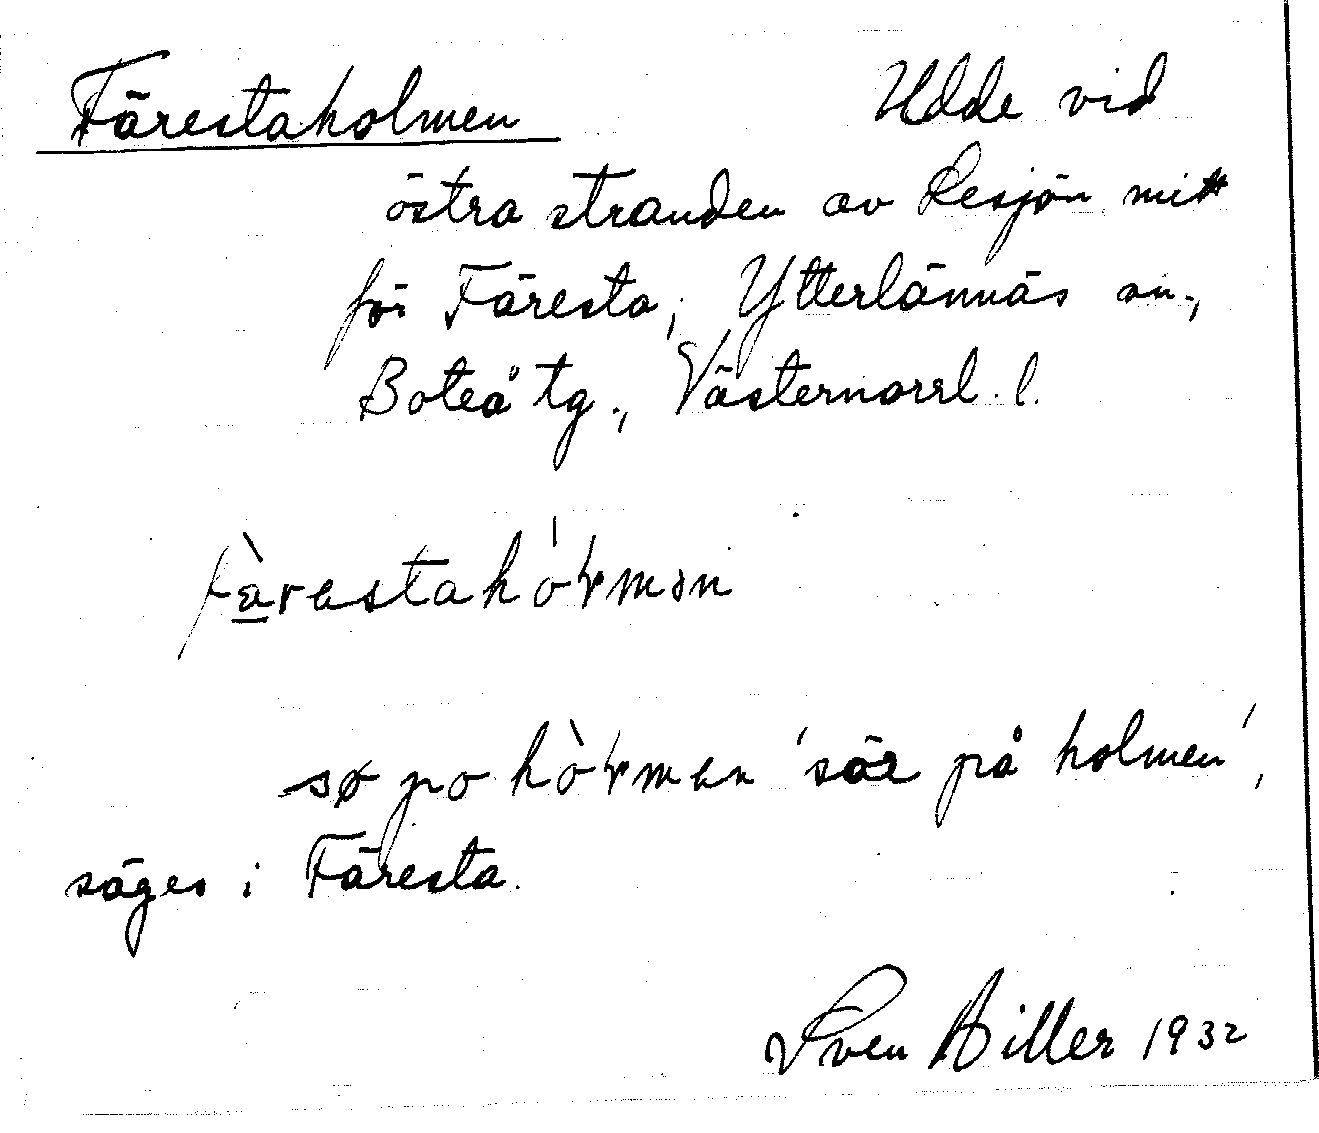 Färestaholmen Udde vid
östra stranden av Lesjön mitt
för Färesta, Ytterlännäs sn.,
Boteå tg., Västernorrl. l.
sø po hòɽmen 'sör på holmen',
säges i Färesta.
Sven Hiller 1932